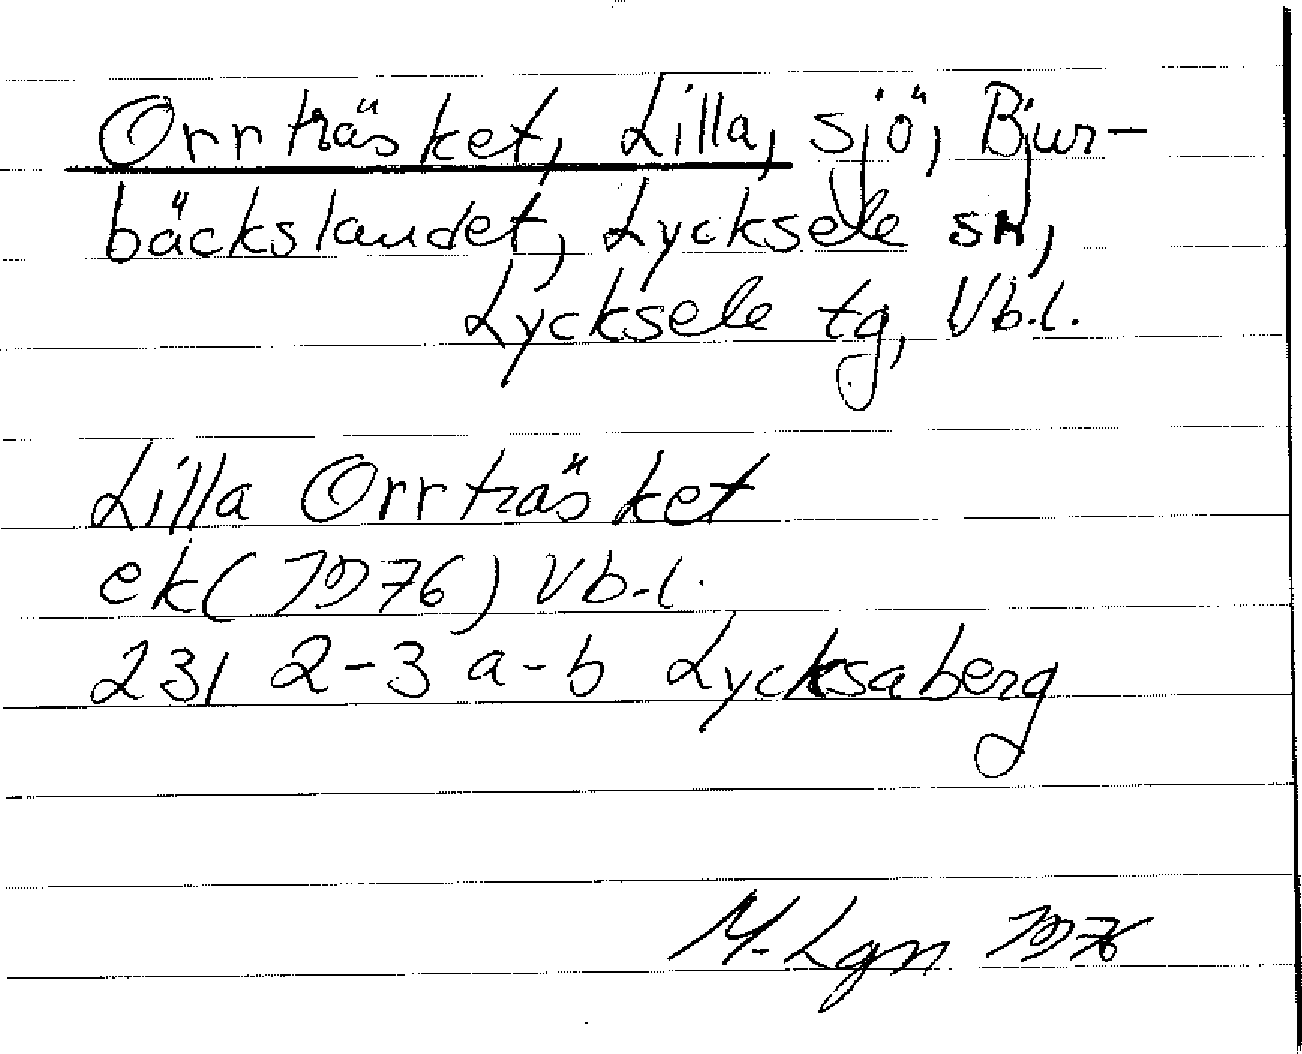 Orrträsket, Lilla, sjö, Bjur-
bäckslandet, Lycksele sn,
Lycksele tg, Vb.l.
Lilla Orrträsket
ek (1976) Vb.l.
231 2-3 a-b Lycksaberg
M. Lgn 1976